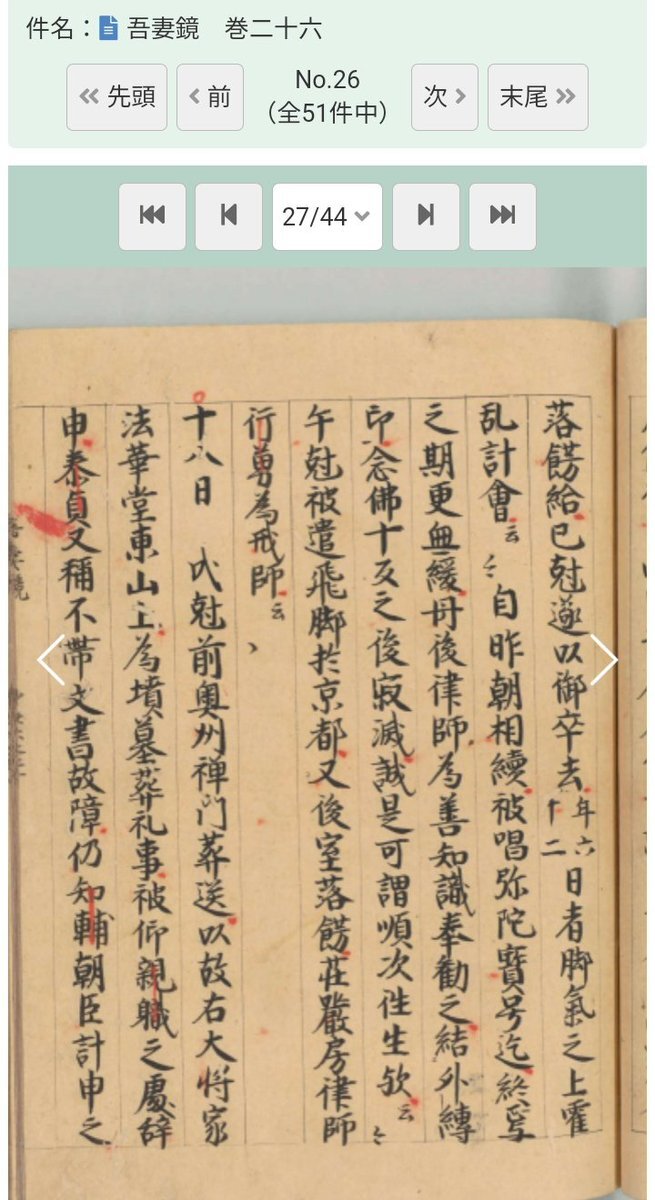 件名：吾妻鏡　巻二十六
先頭
前
No.26
（全51件中）
次
末尾
27/44
落餝給巳尅遂以御卒去年六十二日者脚氣之上霍
乱計會云々自昨朝相續被唱弥陀寳号迄終焉
之期更無緩丹後律師為善知識奉勧之結外縛
印念佛十反之後寂滅誠是可謂順次往生欤云々
午尅被遣飛脚於京都又後室落餝荘嚴房律師
行勇為戒師云々
十八日　戌尅前奥州禅門葬送以故右大将家
法華堂東山上為墳墓葬礼事被仰親職之處辞
申泰貞又稱不帶文書故障仍知輔朝臣計申之